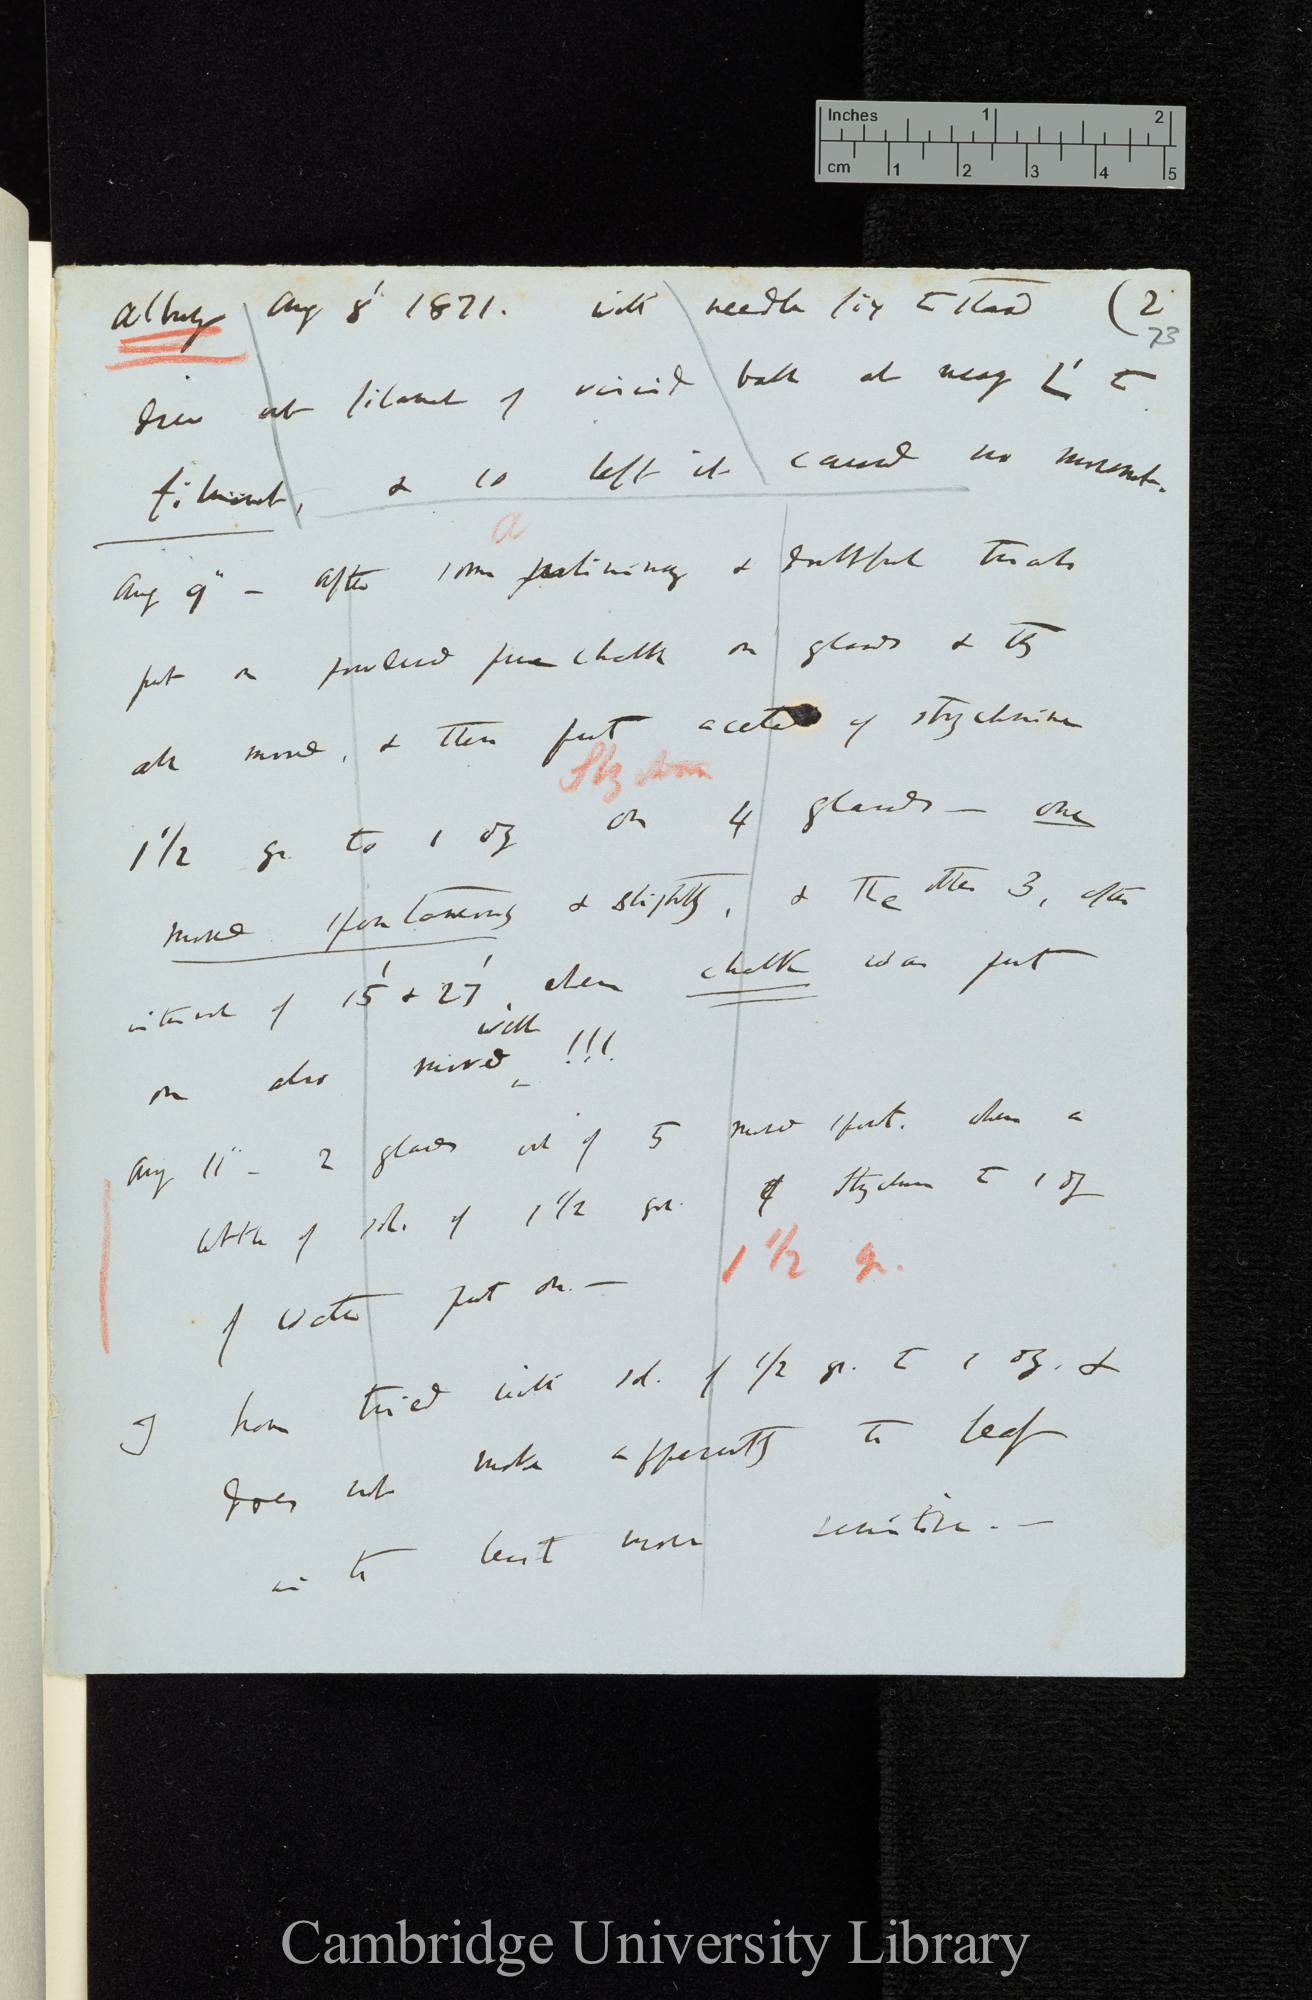 Inches 1 2
cm 1 2 3 4 5
Albury Aug 8' 1871. with needle fix to stand (2
73
drew out filament of viscid ball at near to
filament, & so left it caused no movement.
a
Aug 9" — After some preliminary & doubtful trials
put on powdered pure chalk on glands & they
all moved, & then put acetate of strychnine
Strychnine
1 1/2 gr. to 1 oz on 4 glands — one
moved spontaneously & slightly, & the other 3, after
interval of 15' & 27', when chalk was put
well
on also moved !!!
Aug 11" — 2 glands out of 5 moved spont. when a
little of sol. of 1 1/2 gr. of Strychnine to 1 oz
of water put on. —
1 1/2 gr.
I have tried with sol. of 1/2 gr. to 1 oz. &
does not make apparently the leaf
in the least more sensitive. —
Cambridge University Library